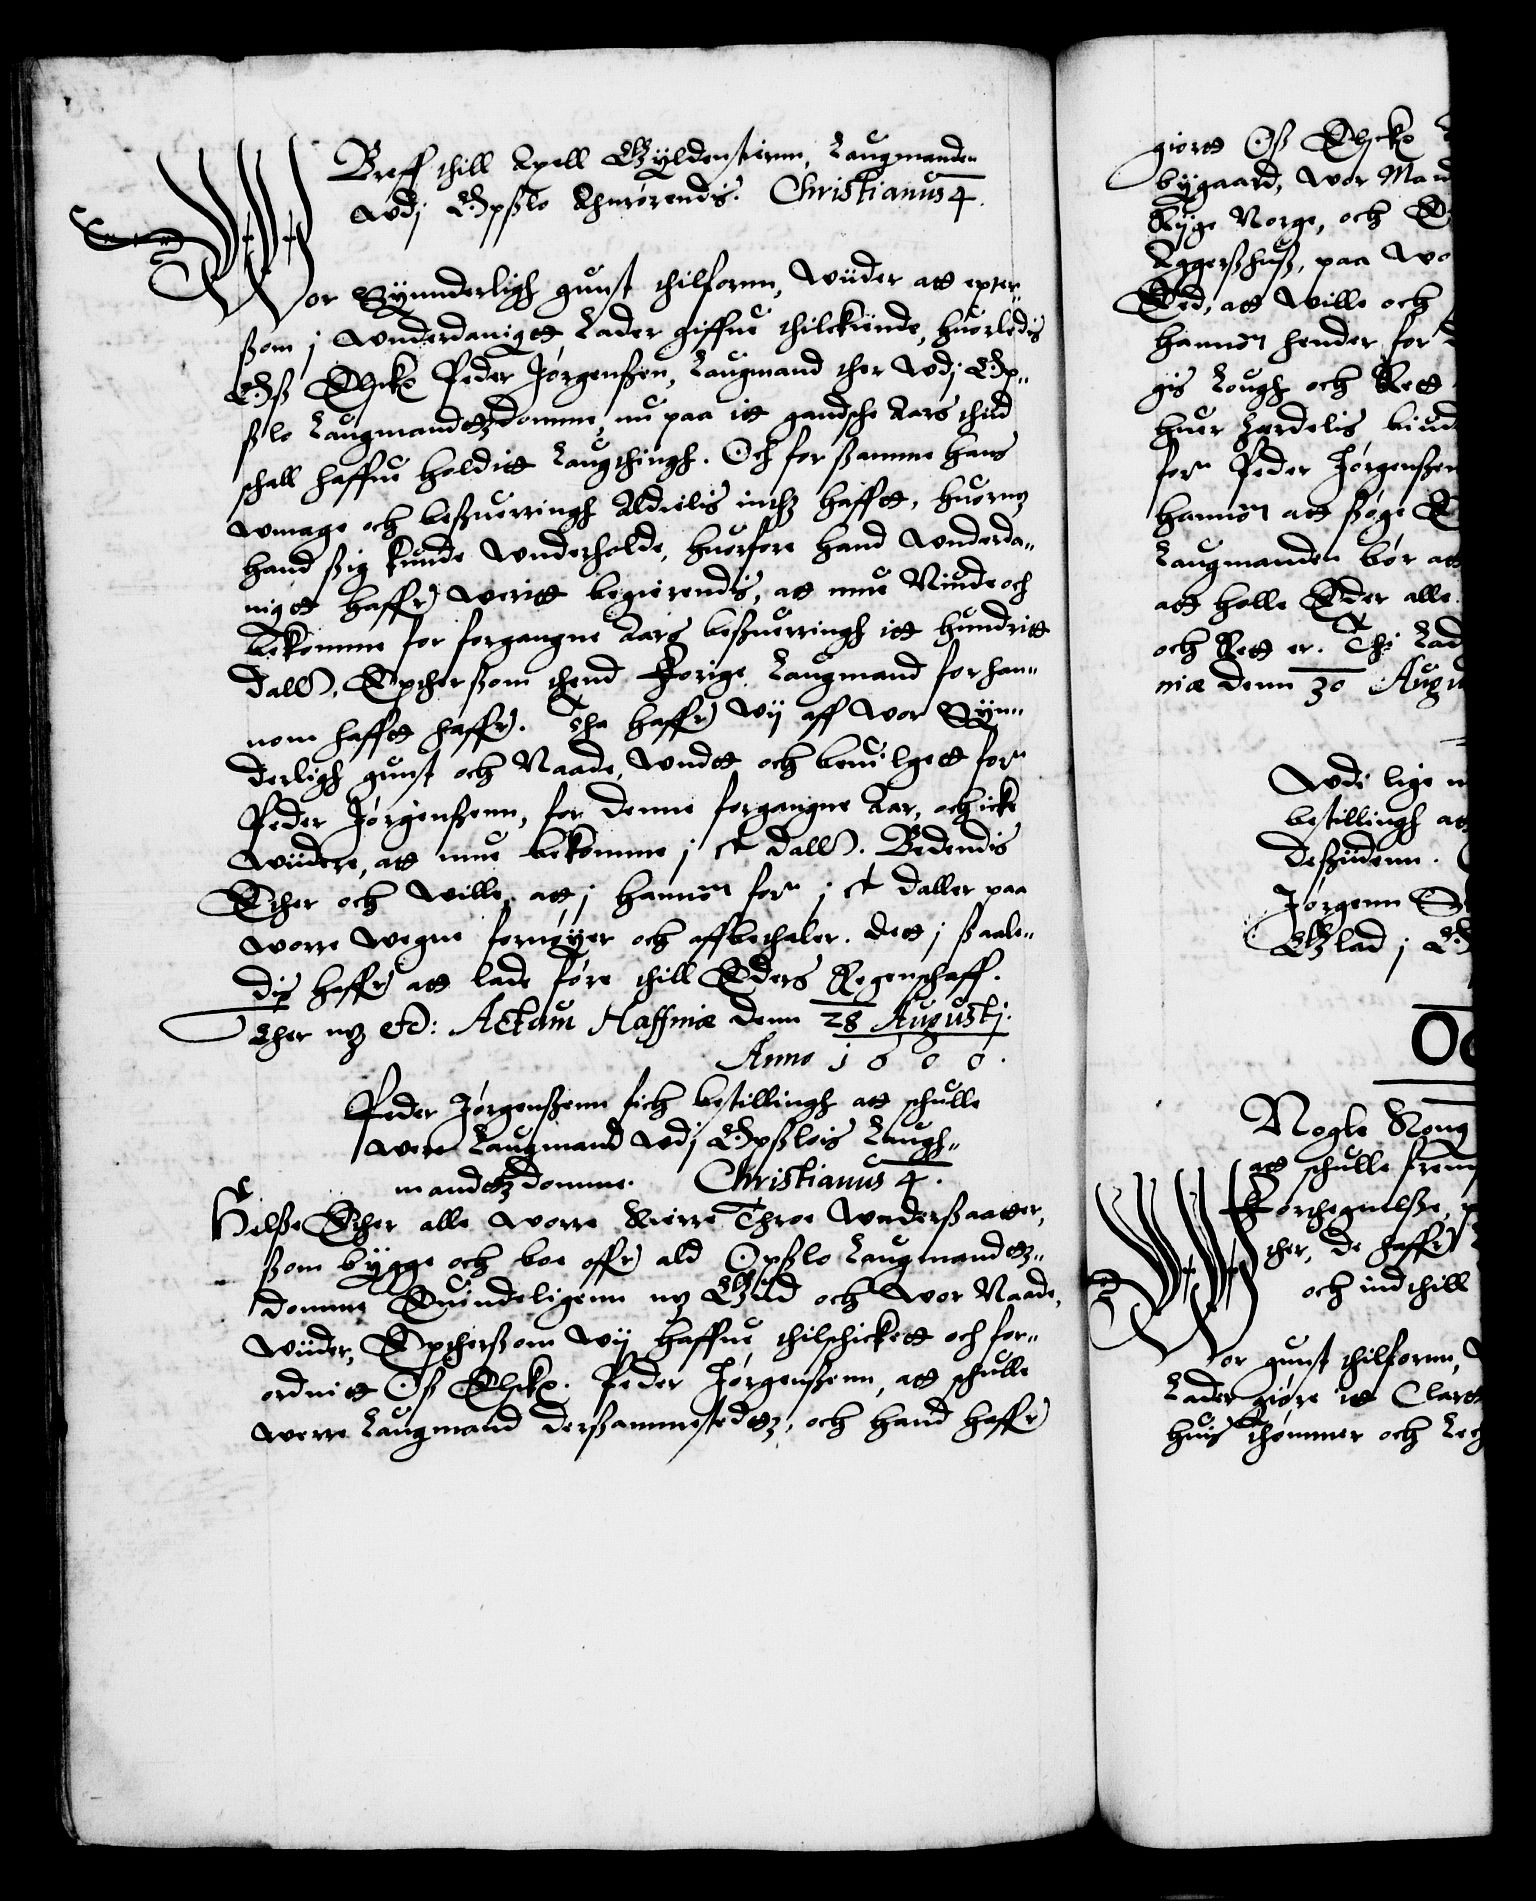 Breff thill Axell Gÿldenstiernn, Laugmanden
wdj Opßlo Anrørendis. Christianus 4.
Wor Sÿnnderligh gunst thilfornn, Wiider att epter„
ßom j wnderdanigtt Lader giffue thilkiende, huorledis
Oß Elske Peder Jørgenßen, Laugmand ther wdj Op„
ßlo Laugmandtzdomme, nu paa itt gandsche Aars thiid
schall haffue holditt Laugthingh. Och for ßamme hans
wmage och beßuerringh Aldielis inthz hafftt, huormz
hand ßig kunde wnderholde, huorfore hand wnderda„
nigtt haffr weritt begierendis, att mue Niude och
bekomme for forgangne Aars beßuerringh itt hundritt
dallr. Epterßom thend forige Laugmand for han„
nom hafftt haffr. Tha haffr wÿ aff wor Sÿn„
derligh gunst och Naade, wndtt och beuilgett forn
Peder Jørgenßenn, for denne forgangne Aar, och icke
wiidere, att mue bekomme j ct dallr. Bedendis
Ether och wille, att j hannom forn j ct daller paa
worre wegne fornøyer och affbethaler. dett j ßaale„
dis haffr att lade føre thill Eders Regenschaff.
Ther mz etc: Actum Haffniæ denn 28 Augustj.
Anno 1600.
Peder Jørgenßenn fich bestillingh att schulle
were Laugmand wdj Opßlois Laugh„
mandtz domme. Christianus 4.
Hilße Ether alle worre Kierre Throe wnderßaatter,
ßom bÿgge och boe offr ald Opßlo Laugmandtz„
domme Euindeligenn mz Gud och wor Naade,
wiider, Epterßom wÿ haffue thilschickett och for„
ordnitt Oß Elske. Peder Jørgenßenn, att schulle
werre Laugmand derßammestedtz, och hand haffr
giortt Oß Elske
bÿgaard, wor Mand
Rÿge Norge, och
Aggerßhuß, paa wo
Eed, att wille och
hannom hender for
gis Lough och Rett
huer særdelis biud
forn Peder Jørgenßen
hannom att ßøge
Laugmanden bør att
att holle Eder alle
och Rett er. Thi Lad
niæ denn 30 Augu
Wdi lige
bestillingh att
deßiidenn.
Jørgenn
Glad j
Oc
Nogle Kong
att schulle frem
Forthegnelße,
ther, de haffr
och indthill
Wor gunst thilfornn,
Lader giøre itt Clart
huis thømmer och